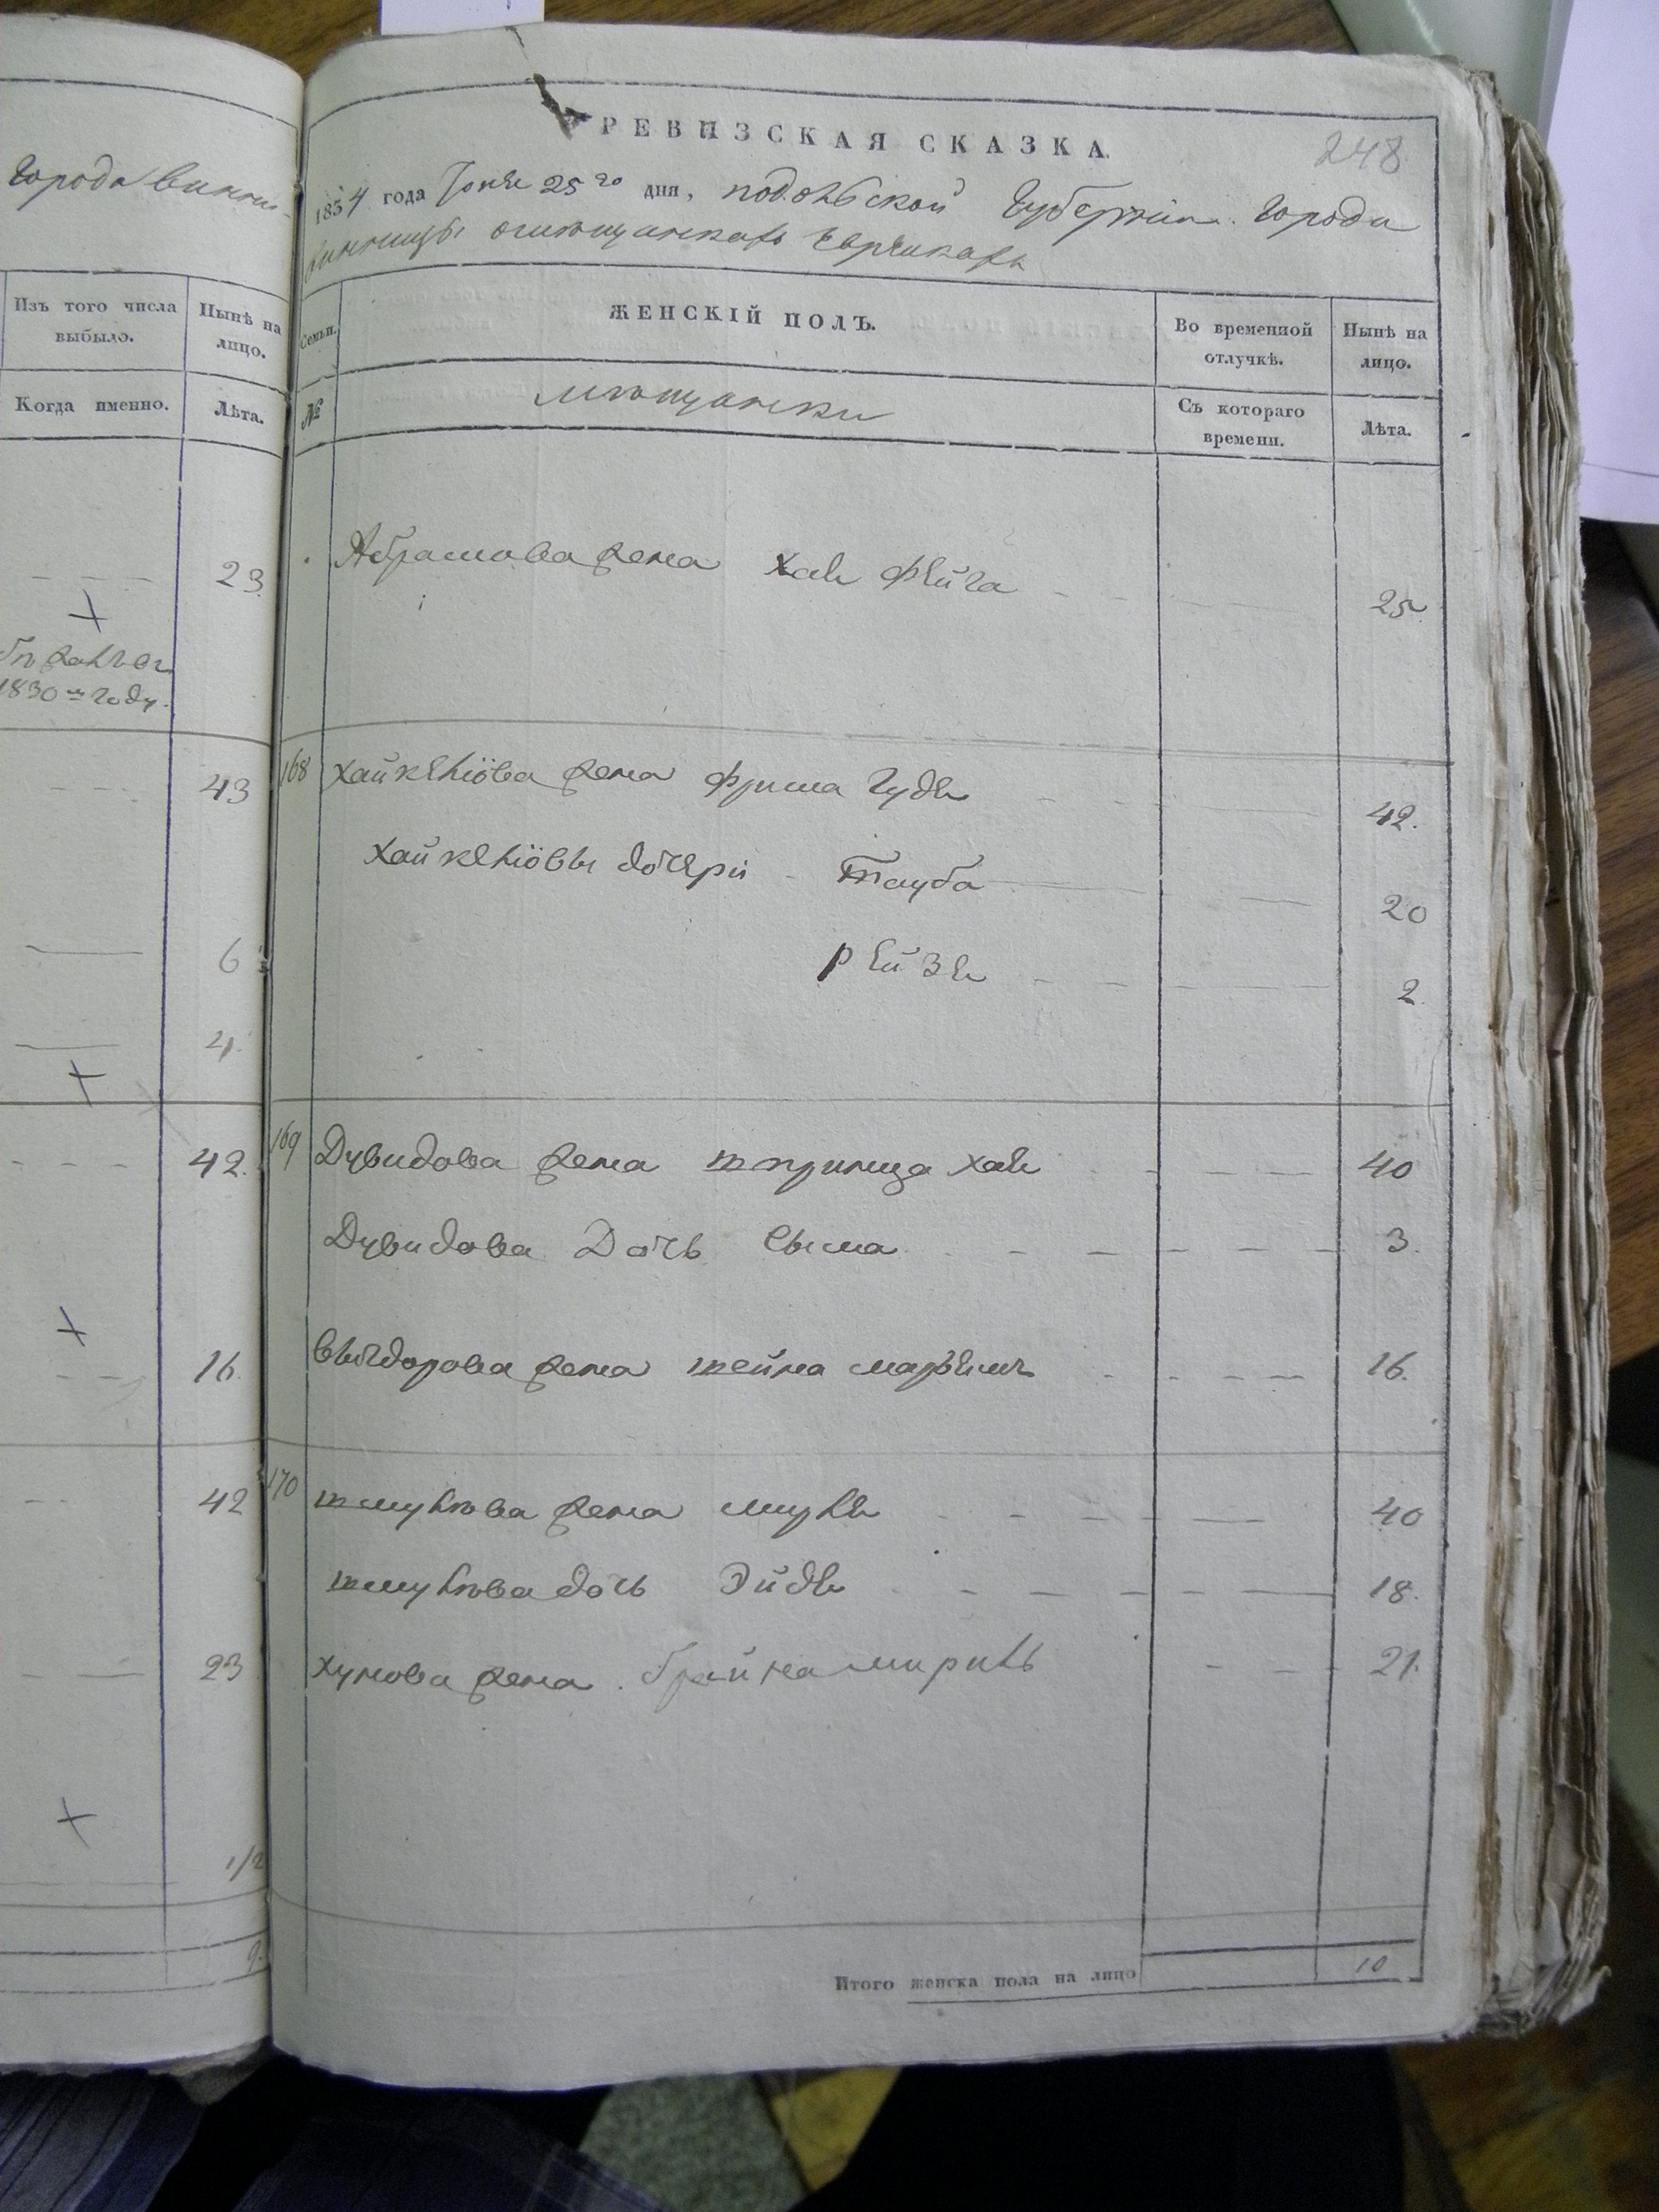 города Винни-
Изъ того числа выбыло.
Нынѣ на лицо.
Когда именно.
Лѣта.
23
1830 м году.
43
6
4
42
16
42
23
1/2
9
РЕВИЗСКАЯ СКАЗКА.
248
1834 года Іюня 25 го дня, Подольской Губерніи Города
Винницы о мѣщанкахъ Еврейкахъ
Семьи.
ЖЕНСКІЙ ПОЛЪ.
Во временной отлучкѣ.
Нынѣ на лицо.
№
мѣщанки
Съ котораго времени.
Лѣта.
Абрамова жена Хая Фейга 25
168 Хайкелiова жена Фрима Гудя 42.
Хайкелiовы дочери Тауба 20
Рейзя 2
169 Дувидова жена Шпринца Хая 40
Дувидова Дочь Сыма 3.
жена Шейна 16.
170 Шмулiова жена 40
Шмулiова дочь Эйдя 18.
жена Брайна 21.
Итого женска пола на лицо 10